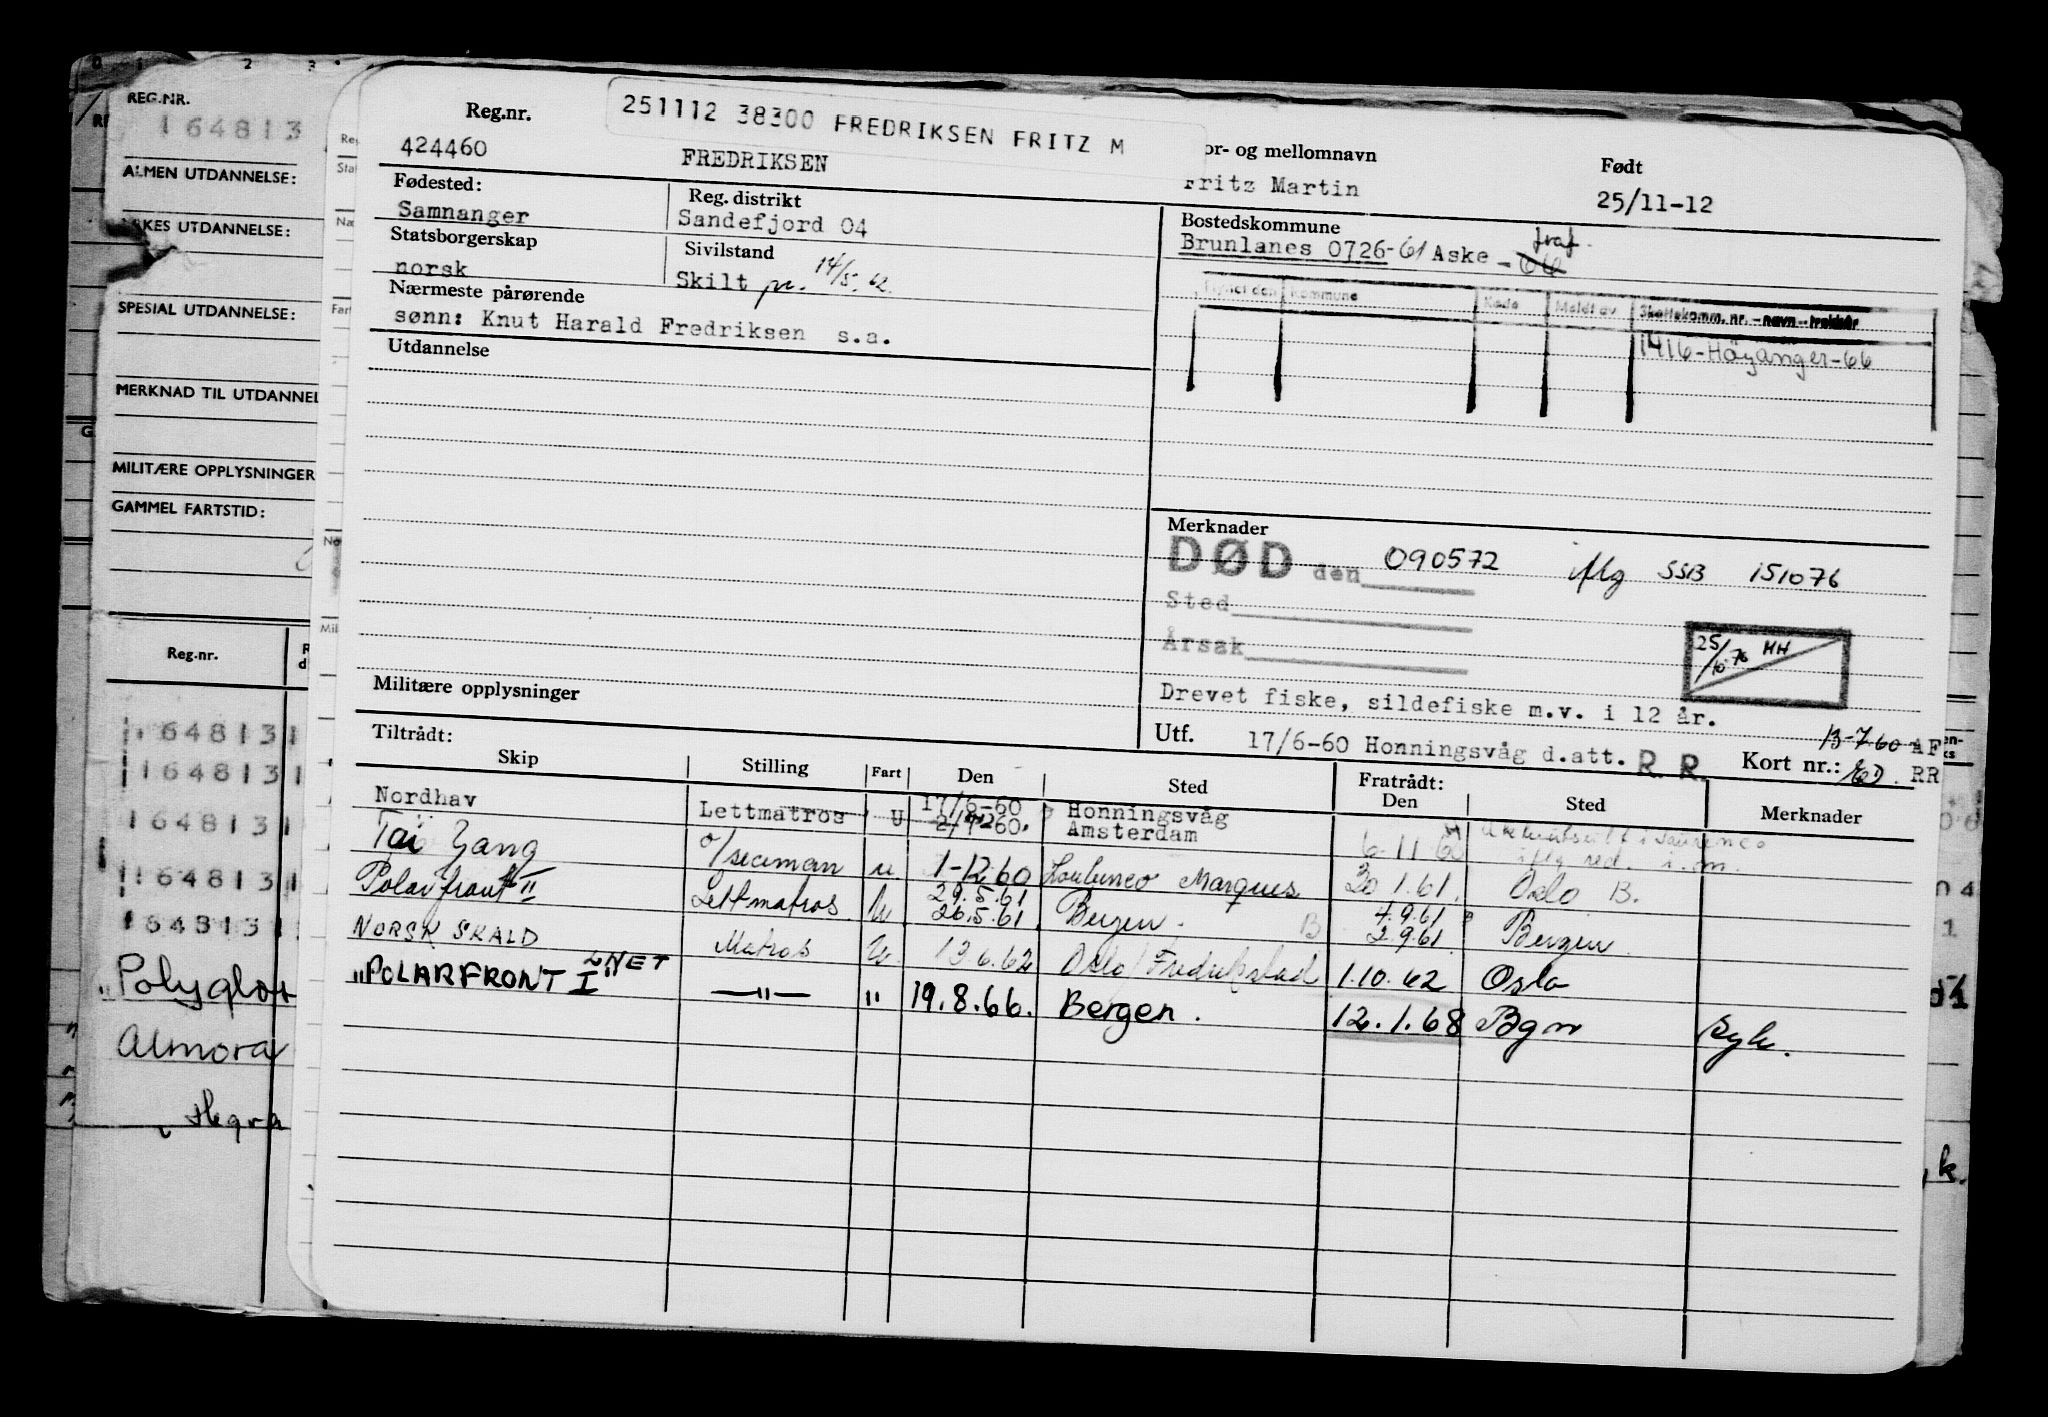 251112 38300 FREDRIKSEN FRITZ M
Reg.nr.
424460
FREDRIKSEN
or- og mellomnavn
Fritz Martin
Født
25/11-12
Fødested:
Samnanger
Reg. distrikt
Sandefjord 04
Bostedskommune
Brunlanes 0726-61 Aske - 66
Statsborgerskap
norsk
Sivilstand
Skilt pr. 14/5-62
Nærmeste pårørende
sønn: Knut Harald Fredriksen s.a.
Flyttet den Kommune Kode Meldt av Skattekomm. nr. - navn - trekkår
1416-Höyanger-66
Utdannelse
Merknader
DØD den 090572 iflg SSB 151076
Sted
Årsak
25/10-76 HH
Drevet fiske, sildefiske m.v. i 12 år.
Militære opplysninger
Utf. 17/6-60 Honningsvåg d.att. R R
13-7-60 AF
Kort nr.: RR
Tiltrådt:
Skip Stilling Fart Den Sted Fratrådt: Den Sted Merknader
Nordhav Lettmatros U 17/6-60 Honningsvåg
2/7-60. Amsterdam 6-11 60
Tai Yang o/seaman u 1-12 60 Lourenco Marques 30 1.61. Oslo B.
Polarfront II Lettmatros U 29.5.61 Bergen. B 4.9.61 Bergen
26.5.61 2.9.61
NORSK SKALD Matros U. 13.6.62 Oslo/Fredrikstad 1.10.62 Oslo
"POLARFRONT I" NET —"— " 19.8.66. Bergen. 12.1.68 Bgn Syk.
REG.NR.
164813
ALMEN UTDANNELSE:
KES UTDANNELSE:
SPESIAL UTDANNELSE:
MERKNAD TIL UTDANNEL
MILITÆRE OPPLYSNINGER
GAMMEL FARTSTID:
Reg.nr.
164813
164813
164813
164813
164813
Almora
Hegra